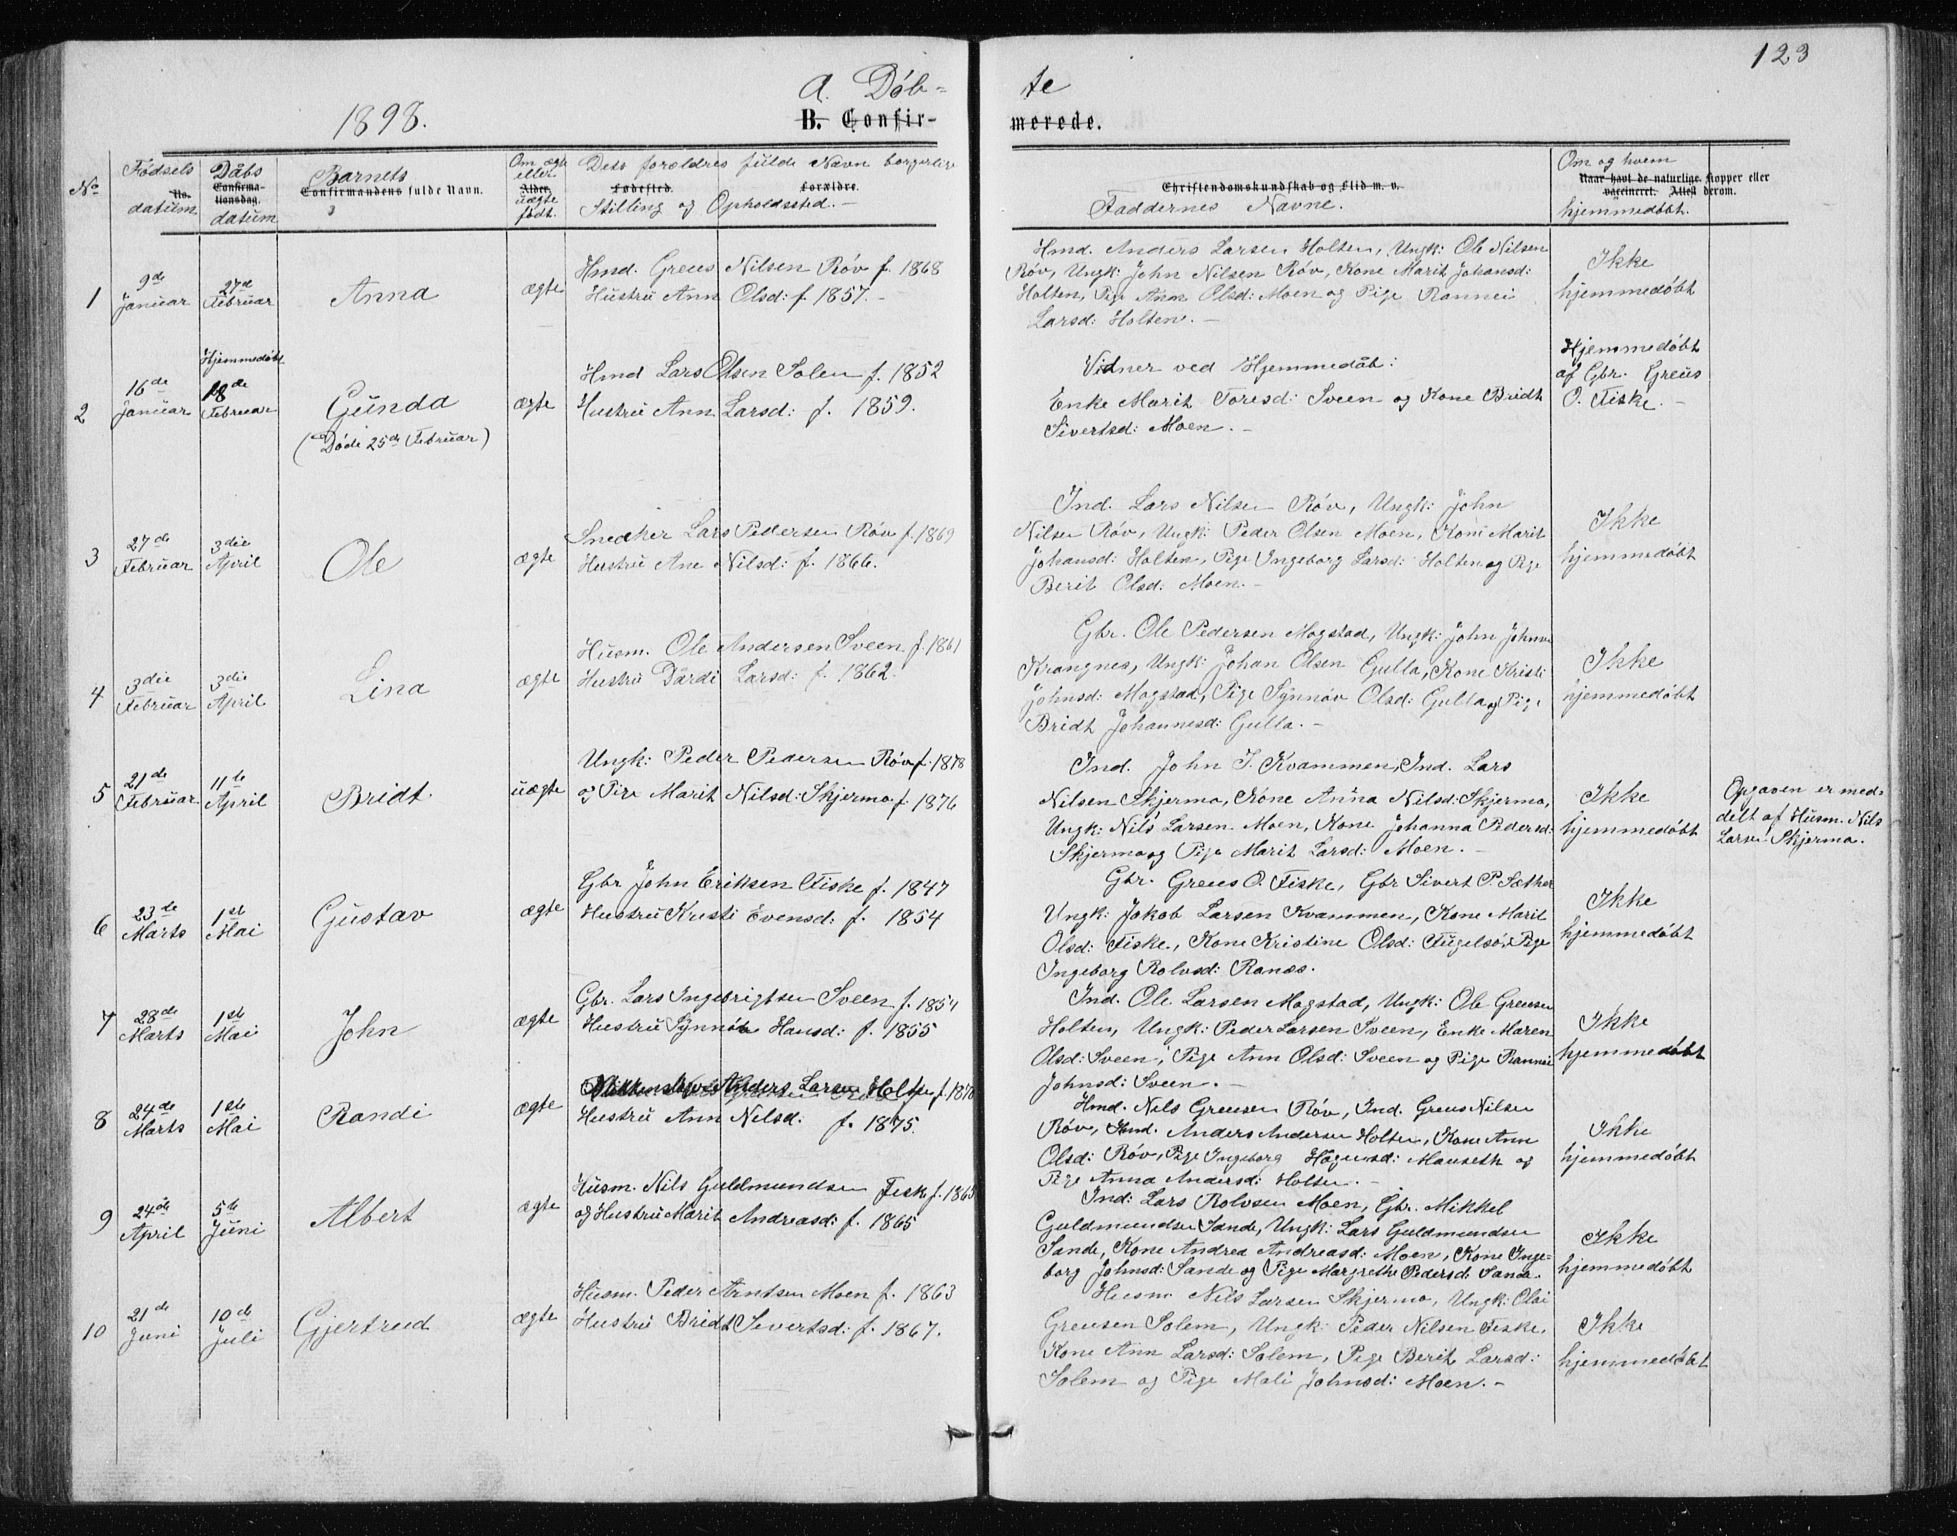 123
1898.
A. Döb-
te
B. Confir-
merede.
No
Fødsels
No.
datum
Dåbs
Confirma-
tionsdag.
datum
Barnets
Confirmandens fulde Navn.
Om ægte
eller
Alder.
uægte
født.
Dets forældres fulde Navn borgerlige
Fødested. Forældre.
Stilling og Opholdssted. -
Christendomskundskab og Flid m. v.
Faddernes Navne.
Om og hvem
Naar havt de naturlige Kopper eller
vaccineret. Attest derom.
hjemmedöbt.
1
9de
Januar
27de
Februar
Anna
ægte
Hmd. Greus Nilsen Röv f. 1868
Hustru Ann Olsd: f. 1857. -
Hmd. Anders Larsen Holten, Ungk: Ole Nilsen
Röv, Ungk: John Nilsen Röv, Kone Marit Johansd:
Holten, Pige Ann Olsd: Moen og Pige Rannei
Larsd: Holten. -
Ikke
hjemmedöbt
2
16de
Januar
Hjemmedöbt
18de
Februar
Gunda
(Döde 25de Februar)
ægte
Hmd Lars Olsen Solem f. 1852
Hustru Ann Larsd: f. 1859.
Vidner ved Hjemmedåb:
Enke Marit Toresd: Sveen og Kone Bridt
Sivertsd: Moen. -
Hjemmedöbt
af Gbr. Greus
O. Fiske. -
3
27de
Februar
3die
April
Ole
ægte
Snedker Lars Pedersen Röv f. 1869
Hustru Ane Nilsd: f. 1866.
Ind. Lars Nilsen Röv, Ungk: John
Nilsen Röv, Ungk: Peder Olsen Moen, Kone Marit
Johansd: Holten, Pige Ingeborg Larsd: Holten og Pige
Berit Olsd: Moen. -
Ikke
hjemmedöbt
4
3die
Februar
3die
April
Lina
ægte
Husm. Ole Andersen Sveen f. 1861
Hustru Dårdi Larsd: f. 1862.
Gbr. Ole Pedersen Mogstad, Ungk: John Johns.
Krangnes, Ungk: Johan Olsen Gulla, Kone Kristi
Johnsd: Mogstad, Pige Synnöv Olsd: Gulla og Pige
Bridt Johannesd: Gulla. -
Ikke
hjemmedöbt
5
21de
Februar
11te
April
Bridt.
uægte
Ungk: Peder Pedersen Röv f. 1878
og Pige Marit Nilsd: Skjermo f. 1876
Ind. John J. Kvammen, Ind. Lars
Nilsen Skjermo, Kone Anna Nilsd: Skjermo,
Ungk: Nils Larsen Moen, Kone Johanna Pedersd:
Skjermo og Pige Marit Larsd: Moen. -
Ikke
hjemmedöbt
Opgaven er med-
delt af Husm. Nils
Larsen Skjermo.
6
23de
Marts
1ste
Mai
Gustav
ægte
Gbr John Eriksen Fiske f. 1847
Hustru Kristi Evensd: f. 1854
Gbr. Greus O. Fiske, Gbr Sivert P. Sæther
Ungk: Jakob Larsen Kvammen, Kone Marit
Olsd: Fiske, Kone Kristine Olsd: Fugelsö, Pige
Ingeborg Rolvsd: Ranæs.
Ikke
hjemmedöbt
7
28de
Marts
1ste
Mai
John
ægte
Gbr. Lars Ingebrigtsen Sveen f. 1854
Hustru Synnöv Hansd: f. 1855
Ind. Ole Larsen Mogstad, Ungk: Ole Greusen
Holten, Ungk: Peder Larsen Sveen, Enke Maren
Olsd: Sveen, Pige Ann Olsd: Sveen og Pige Rannei
Johnsd: Sveen. -
Ikke
hjemmedöbt
8
24de
Marts
1ste
Mai
Randi
ægte
Anders Larsen Holten f. 1870
Hustru Ann Nilsd. f. 1875.
Hmd. Nils Greusen Röv, Ind. Greus Nilsen
Röv, Hmd. Anders Andersen Holten, Kone Ann
Olsd: Röv, Pige Ingeborg Hagensd: Mauseth og
Pige Anna Andersd: Holten. -
Ikke
hjemmedöbt
9
24de
April
5te
Juni
Albert
ægte
Husm. Nils Guldmundsen Fiske f. 1865
og Hustru Marit Andreasd: f. 1865
Ind: Lars Rolvsen Moen, Gbr. Mikkel
Guldmundsen Sande, Ungk: Lars Guldmundsen
Sande, Kone Andrea Andreasd: Moen, Kone Inge-
borg Johnsd: Sande og Pige Margrethe Pedersd: Sande.
Ikke
hjemmedöbt
10
21de
Juni
10de
Juli
Gjertrud
ægte
Husm. Peder Arntsen Moen f. 1863
Hustru Bridt Sivertsd: f. 1867.
Husm Nils Larsen Skjermo, Ungk: Olai
Greusen Solem, Ungk: Peder Nilsen Fiske,
Kone Ann Larsd: Solem, Pige Berit Larsd:
Solem og Pige Mali Johnsd: Moen. -
Ikke
hjemmedöbt